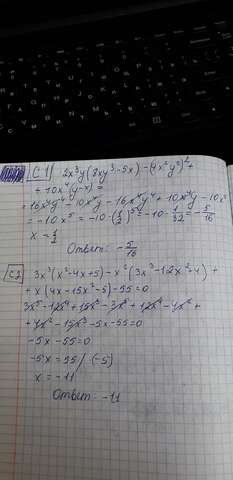 C1 2x³y(8xy³-5x)-(4x²y²)²+
+10x⁴(y-x)=
=16x⁴y⁴-10x⁴y-16x⁴y⁴+10x⁴y-10x⁵
=-10x⁵=-10·(1/2)⁵=-10·1/32=-5/16
x=1/2
Ответ: -5/16
C2 3x³(x²-4x+5)-x²(3x³-12x²+4)+
+x(4x-15x²-5)-55=0
3x⁵-12x⁴+15x³-3x⁵+12x⁴-4x²+
+4x²-15x³-5x-55=0
-5x-55=0
-5x=55/(-5)
x=-11
Ответ: -11